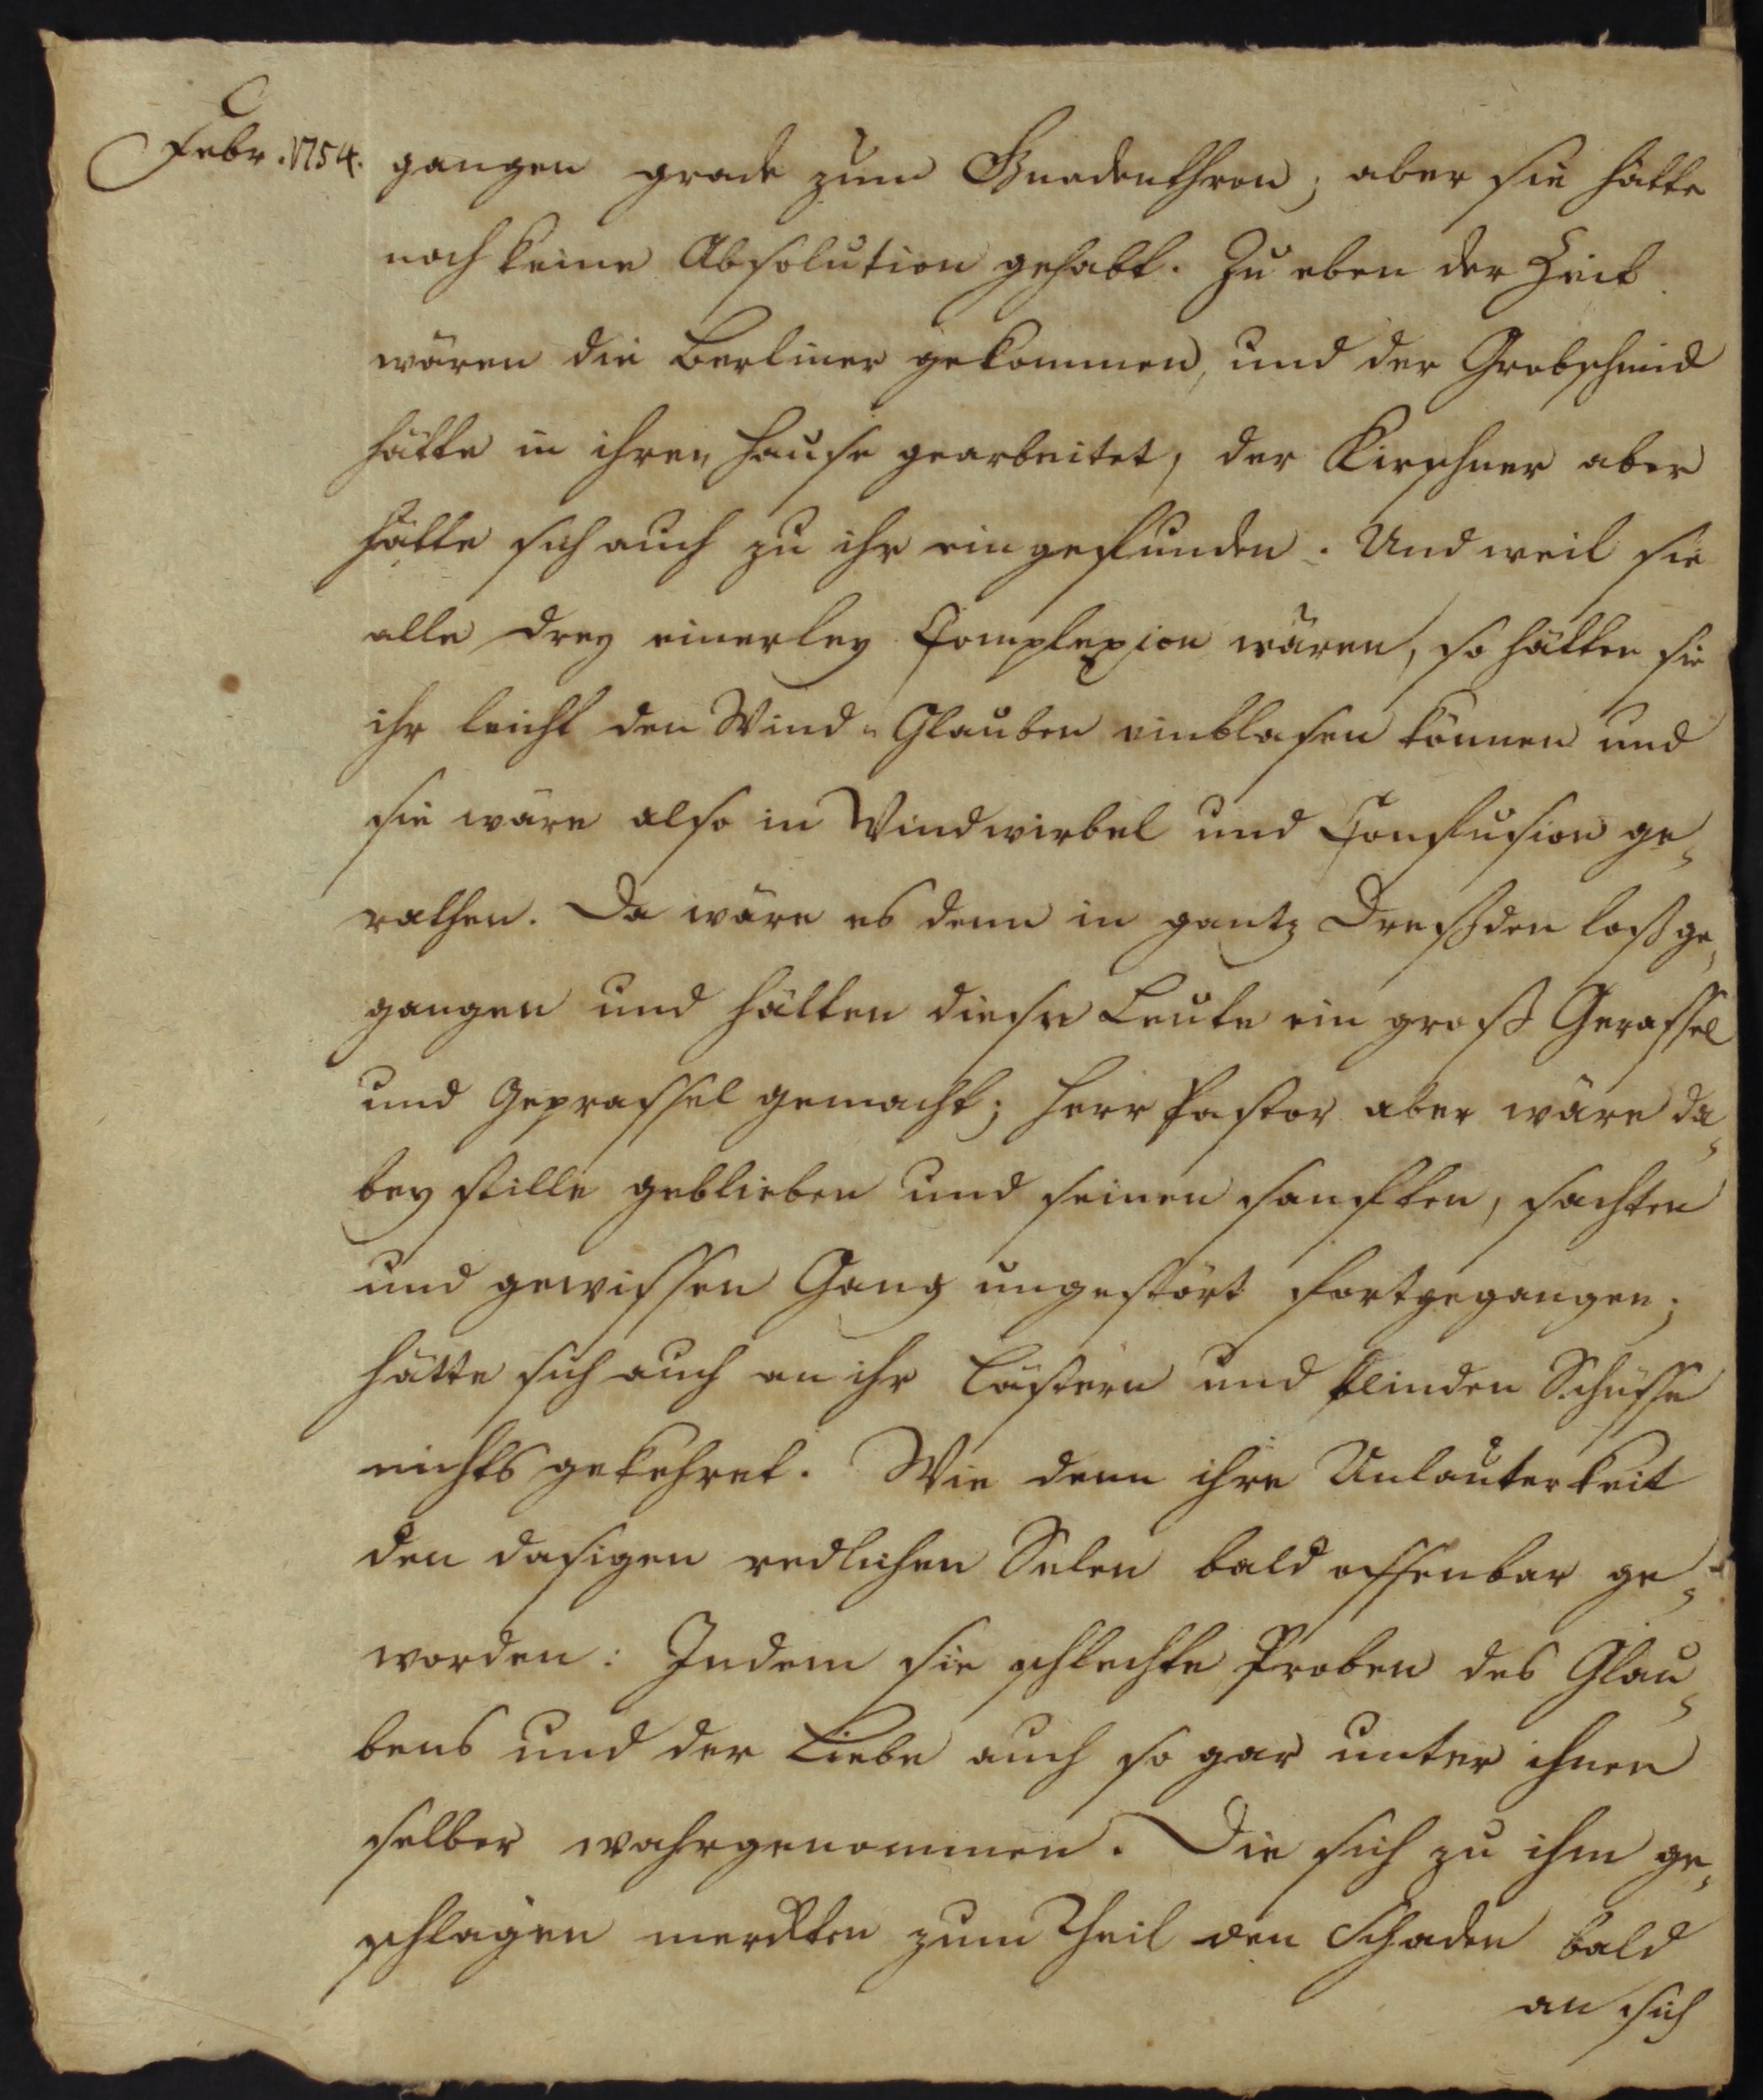 Febr. 1754.
gangen grade zum Gnadenthron; aber sie hätte
noch keine Absolution gehabt. Zu eben der Zeit
wären die Berliner gekommen, und der Grobschmid
hätte in ihren Hause gearbeitet, der Kirschner aber
hätte sich auch zu ihr eingefunden. Und weil sie
alle drey einerley Complexion wären, so hätten sie
ihr leicht den Wind-Glauben einblasen können und
sie wäre also in Windwirbel und Confusion ge-
rathen. Da wäre es denn in gantz Dreßden loßge-
gangen und hätten diese Leute ein groß Gerassel
und Geprassel gemacht; Herr Pastor aber wäre da-
bey stille geblieben und seinen sanften, sachten
und gewissen Gang ungestört fortgegangen;
hätte sich auch an ihr Lästern und blinden Schüsse
nichts gekehret. Wie denn ihre Unlauterkeit
den dasigen redlichen Selen bald offenbar ge-
worden: Indem sie schlechte Proben des Glau-
bens und der Liebe auch so gar unter ihnen
selber wahrgenommen. Die sich zu ihm ge-
schlagen merckten zum Theil den Schaden bald
an sich